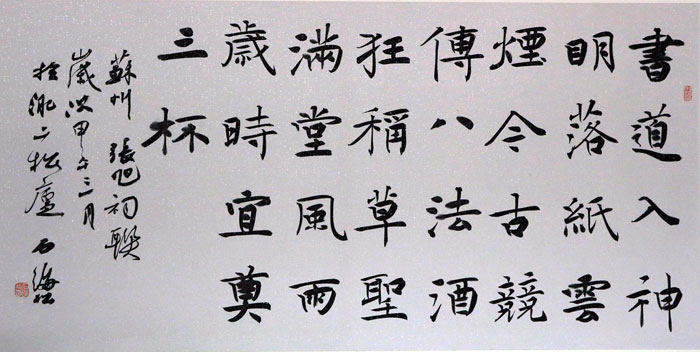 書道入神
明落紙雲
煙今古競
傳八法酒
狂稱草聖
滿堂風雨
歲時宜奠
三杯
蘇州 張旭祠联
歲次甲午三月
於淞上松廬 石海松